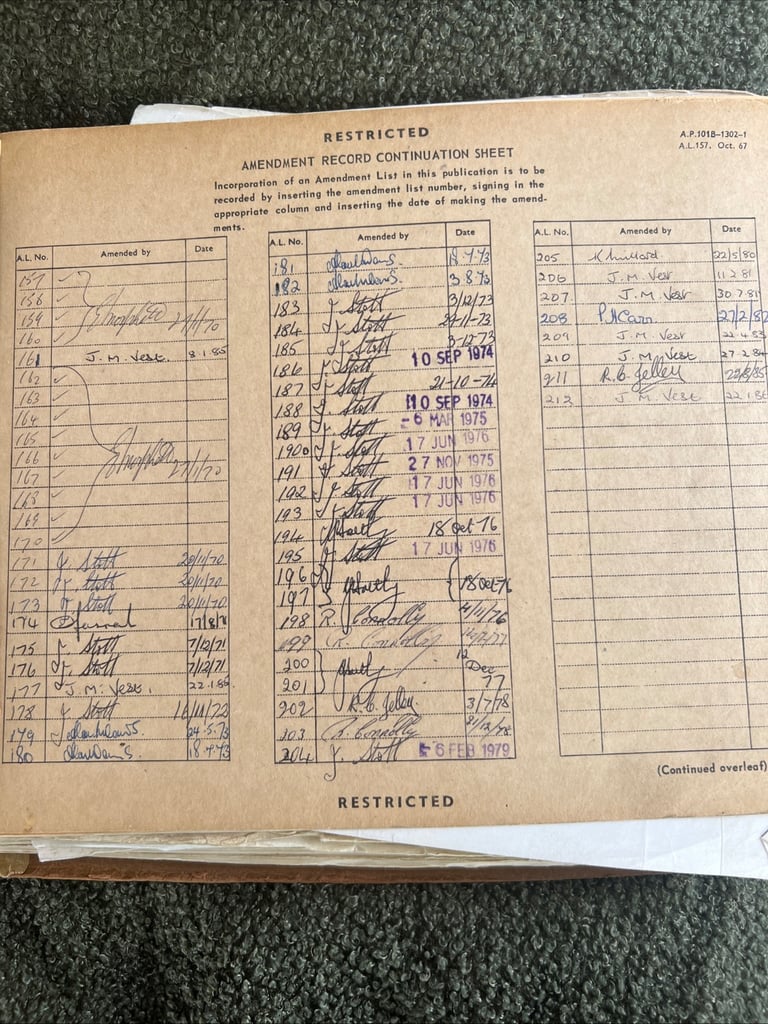 RESTRICTED
A.P.101B-1302-1
A.L.157, Oct. 67
AMENDMENT RECORD CONTINUATION SHEET
Incorporation of an Amendment List in this publication is to be
recorded by inserting the amendment list number, signing in the
appropriate column and inserting the date of making the amend-
ments.
A.L. No. Amended by Date
157
158
159 27/1/70
160
161 J.M. Vest. 8.1.85
162
163
164
165
166
167 27/1/70
168
169
170
171 J. Stott 20/11/70
172 J. Stott 20/11/70
173 J. Stott 20/11/70
174 17/8/71
175 J. Stott 7/12/71
176 J. Stott 7/12/71
177 J.M. Vest. 22.1.86
178 J. Stott 16/11/72
179 24.5.73
180 18.4.73
A.L. No. Amended by Date
181
182 3.8.73
183 J. Stott 3/12/73
184 J. Stott 29-11-73
185 J. Stott 3-12-73
186 J. Stott 10 SEP 1974
187 J. Stott 21-10-74
188 J. Stott 10 SEP 1974
189 J. Stott 6 MAR 1975
190 J. Stott 17 JUN 1976
191 J. Stott 27 NOV 1975
192 J. Stott 17 JUN 1976
193 J. Stott 17 JUN 1976
194 18 Oct 76
195 J. Stott 17 JUN 1976
196
197 18 Oct 76
198 R. Connolly 4/11/76
199 R. Connolly
200 12 Dec
201 77
202 R.G. Jelley. 3/7/78
203 R. Connolly 21/12/78
204 J. Stott 6 FEB 1979
A.L. No. Amended by Date
205 22/5/80
206 J.M. Vest 11.2.81
207 J.M. Vest 30.7.81
208 P.N. Carr 27/2/82
209 J.M. Vest 22.4.83
210 J.M. Vest 27.2.84
211 R.G. Jelley
212 J.M. Vest 22.1.86
(Continued overleaf)
RESTRICTED